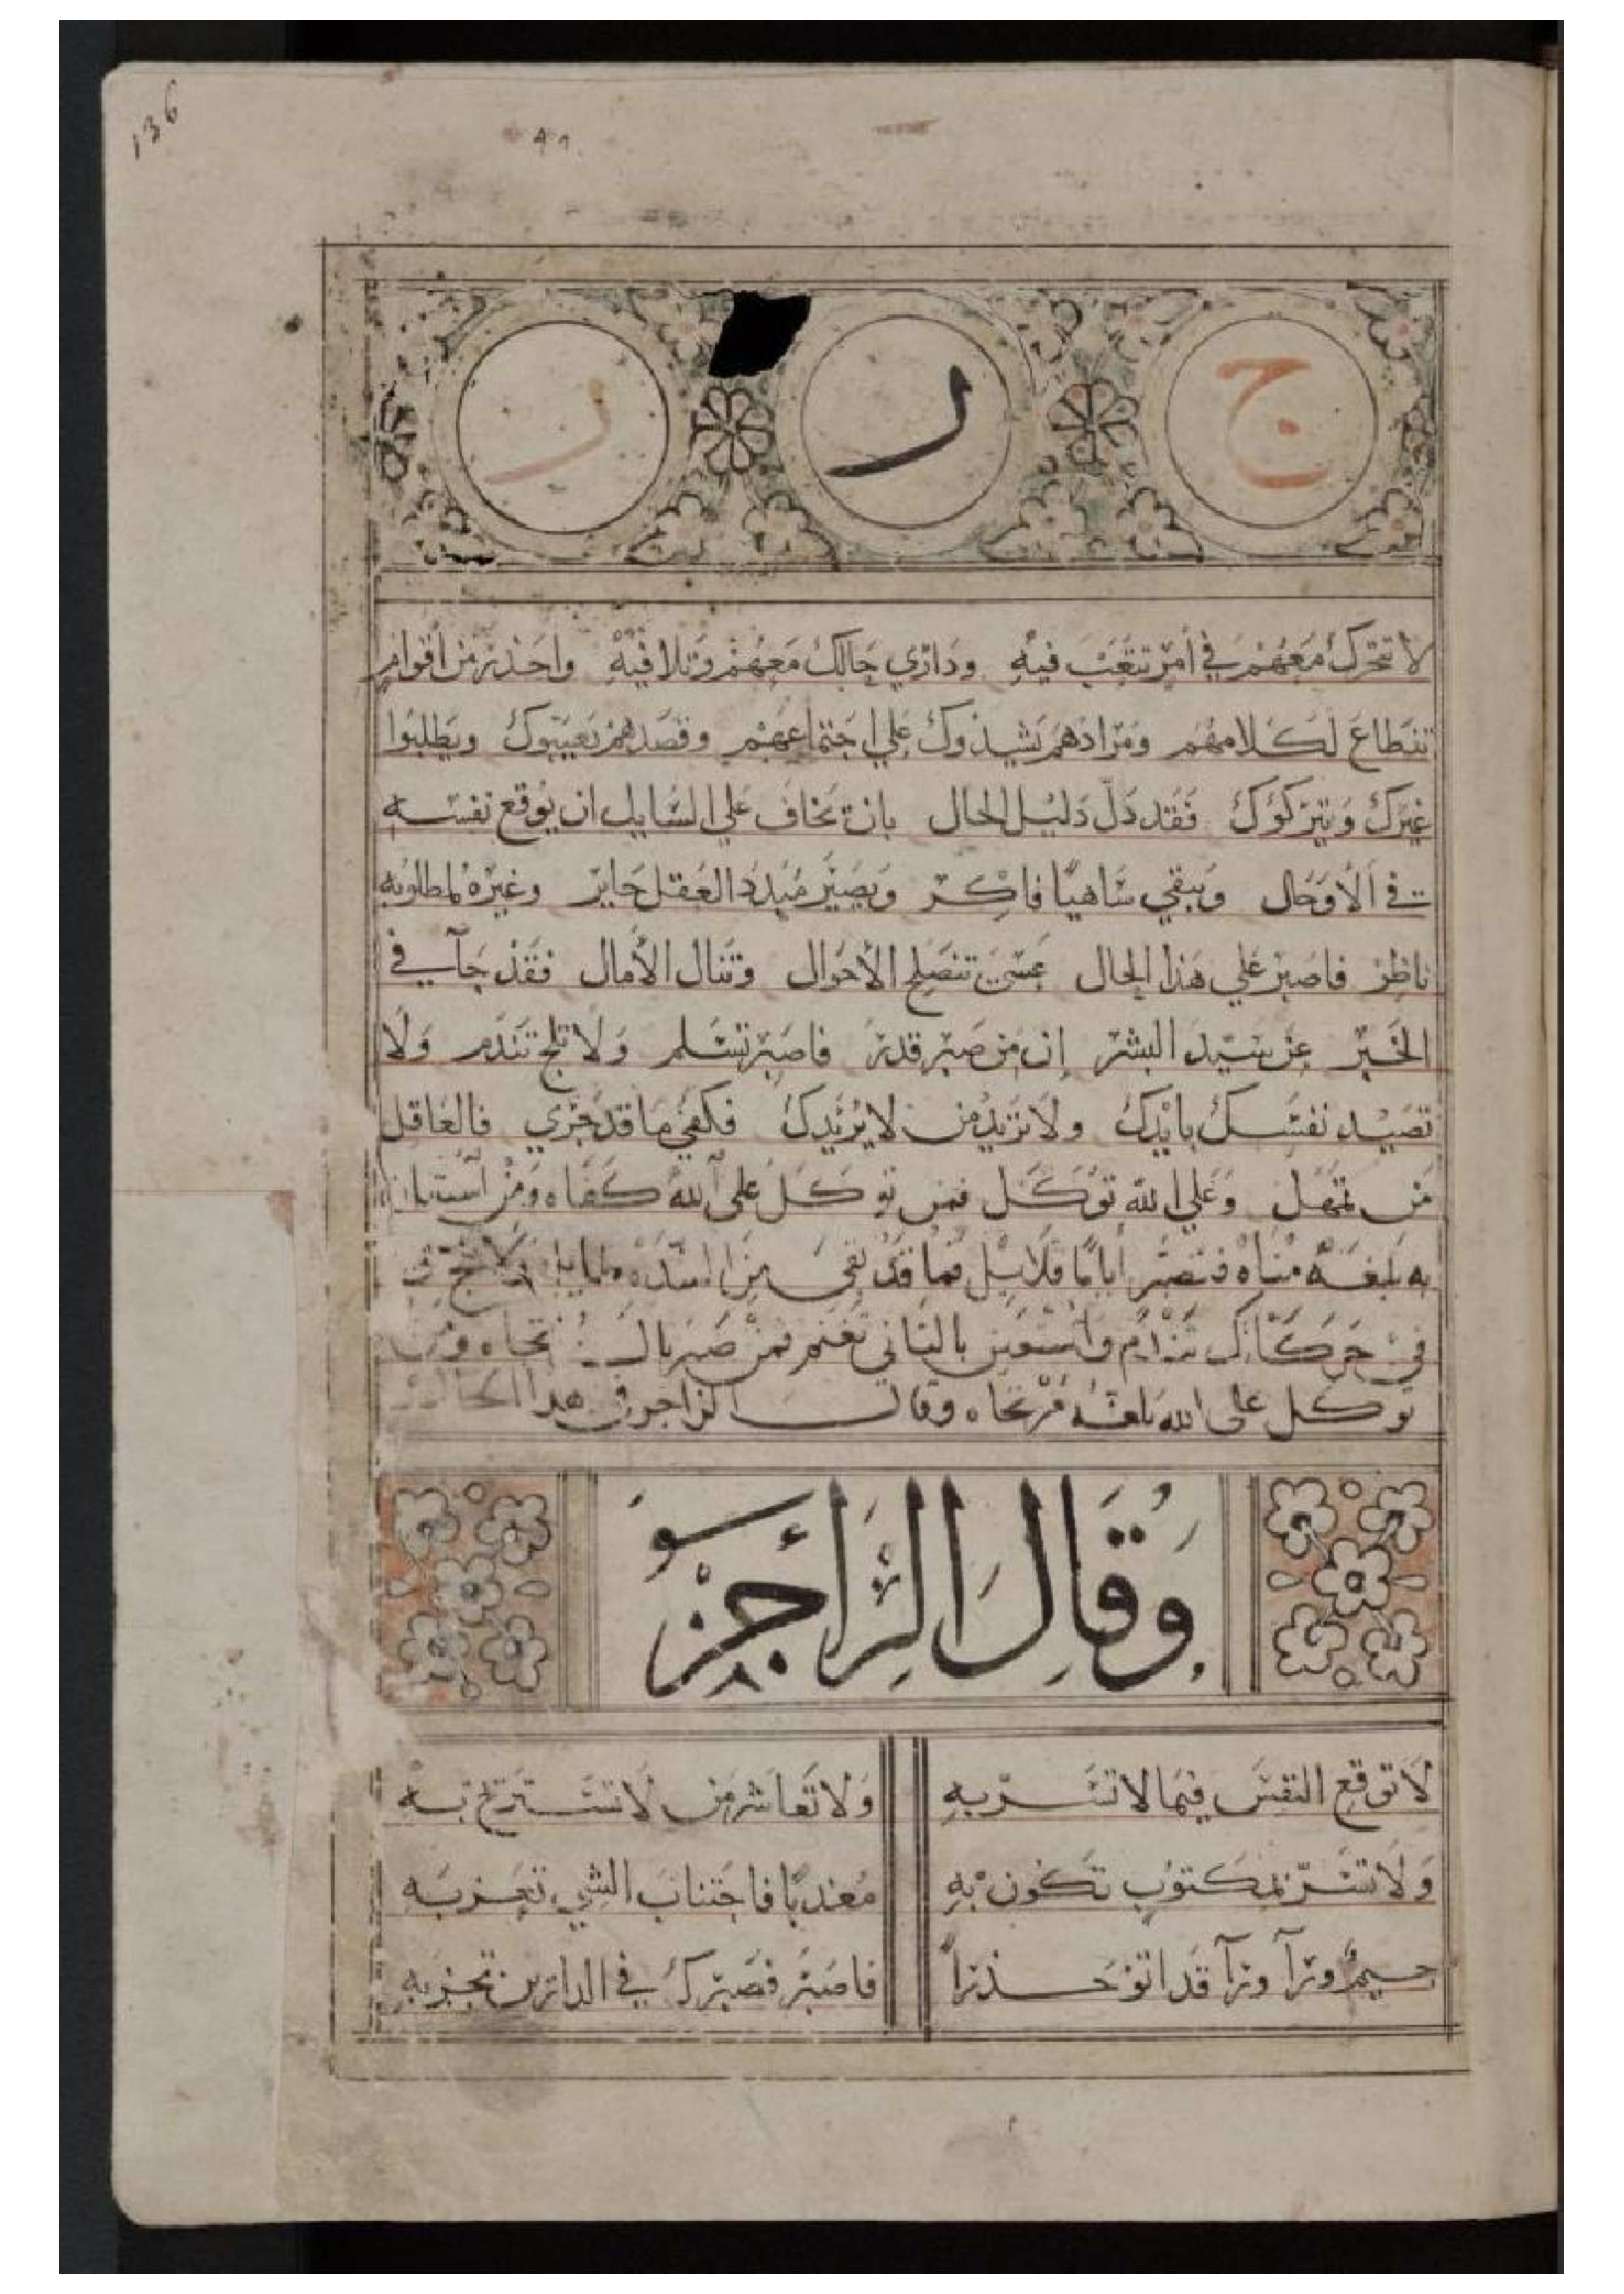 136
ج ر ر
لا تتحرك معهم في أمر تتعب فيه ودازي حالك معهم وتلافيه واحذر من أقوام
تنطاع لكلامهم ومرادهم يشيدوك علي اجتماعهم وقصدهم تعيبوك ويطلبوا
غيرك ويتركوك فقد دل دليل الحال بان تخاف علي السايل ان يوقع نفسه
في الأوحال ويبقي ساهيا فاكر ويصير مبدد العقل حاير وغيره لمطلوبه
ناظر فاصبر علي هذا الحال عسى تنصلح الأحوال وتنال الأمال فقد جآ في
الخبر عن سيد البشر إن من صبر قدر فاصبر تسلم ولا تلج تندم ولا
تصيد نفسك بايدك ولا تريد من لا يريدك فكفي ما قد جري فالعاقل
من تمهل وعلي الله توكل فمن توكل على الله كفاه ومن استعان
به بلغه مناه فتصبر أياما قلايل فما قد بقي من الشده
في حركاتك تندم واستعين بالتاني تغنم فمن صبر نال
توكل على الله بلغه مرتجاه وقال الراجز في هذا الحال
وقال الراجز
لا توقع النفس فيما لا تسر به ولا تعاشر من لا تستريح به
ولا تسر بمكتوب تكون به معذبا فاجتناب الشي تعز به
جيم ورآ ورآ قد اتو حذرا فاصبر فصبرك في الدارين تجز به